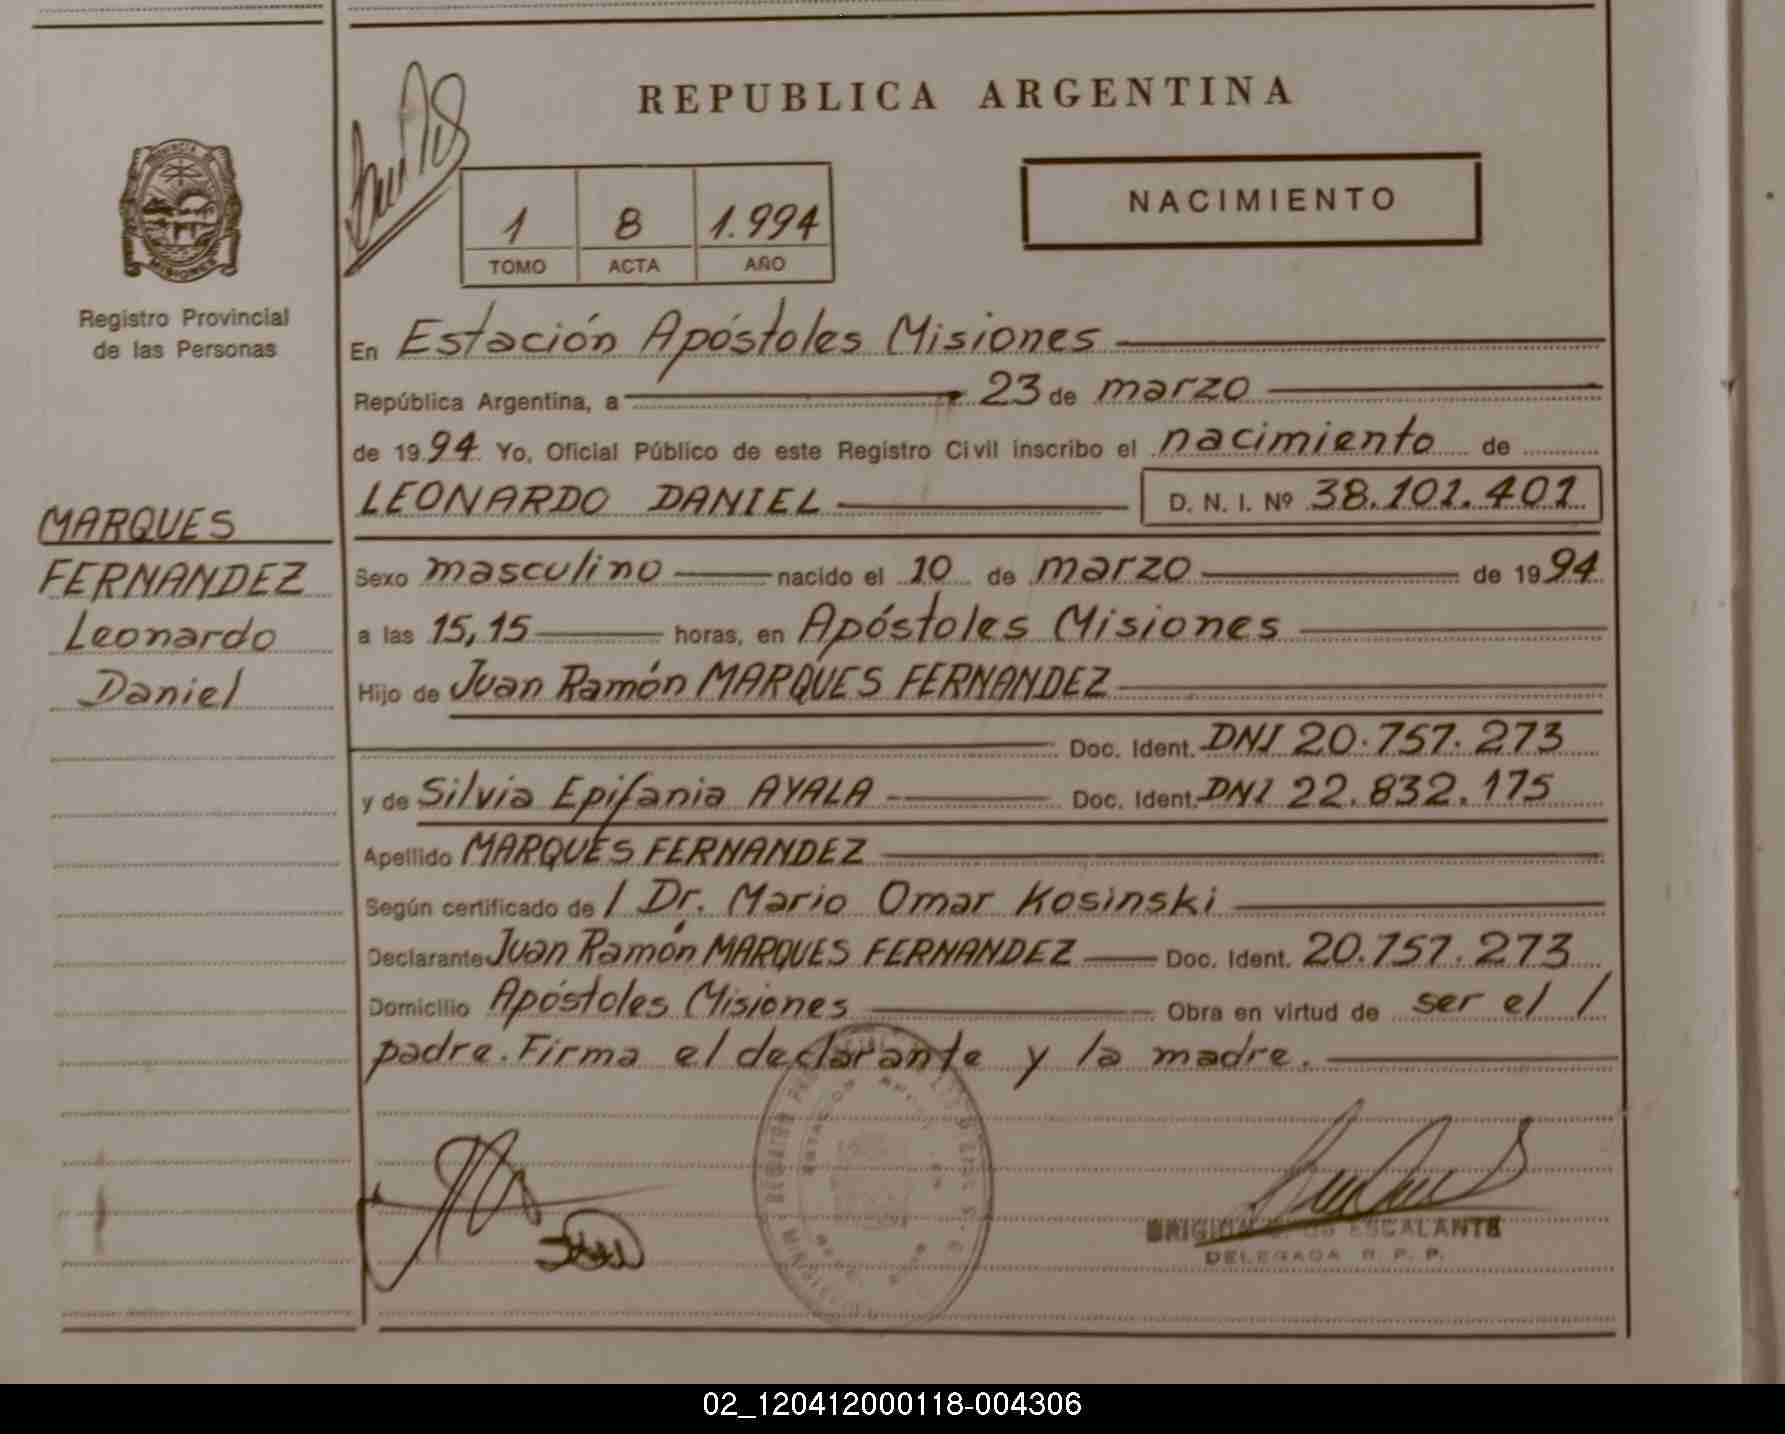 REPUBLICA ARGENTINA
NACIMIENTO
1 8 1.994
TOMO ACTA AÑO
MISIONES
Registro Provincial
de las Personas
En Estación Apóstoles Misiones
República Argentina, a 23 de marzo
de 1994. Yo, Oficial Público de este Registro Civil inscribo el nacimiento de
LEONARDO DANIEL D. N. I. Nº 38.101.401
MARQUES
FERNANDEZ
Leonardo
Daniel
Sexo masculino nacido el 10 de marzo de 1994
a las 15,15 horas, en Apóstoles Misiones
Hijo de Juan Ramón MARQUES FERNANDEZ
Doc. Ident. DNI 20.757.273
y de Silvia Epifania AYALA Doc. Ident. DNI 22.832.175
Apellido MARQUES FERNANDEZ
Según certificado de / Dr. Mario Omar Kosinski
Declarante Juan Ramón MARQUES FERNANDEZ Doc. Ident. 20.757.273
Domicilio Apóstoles Misiones Obra en virtud de ser el /
padre. Firma el declarante y la madre.
ESCALANTE
DELEGADA R. P. P.
02_120412000118-004306